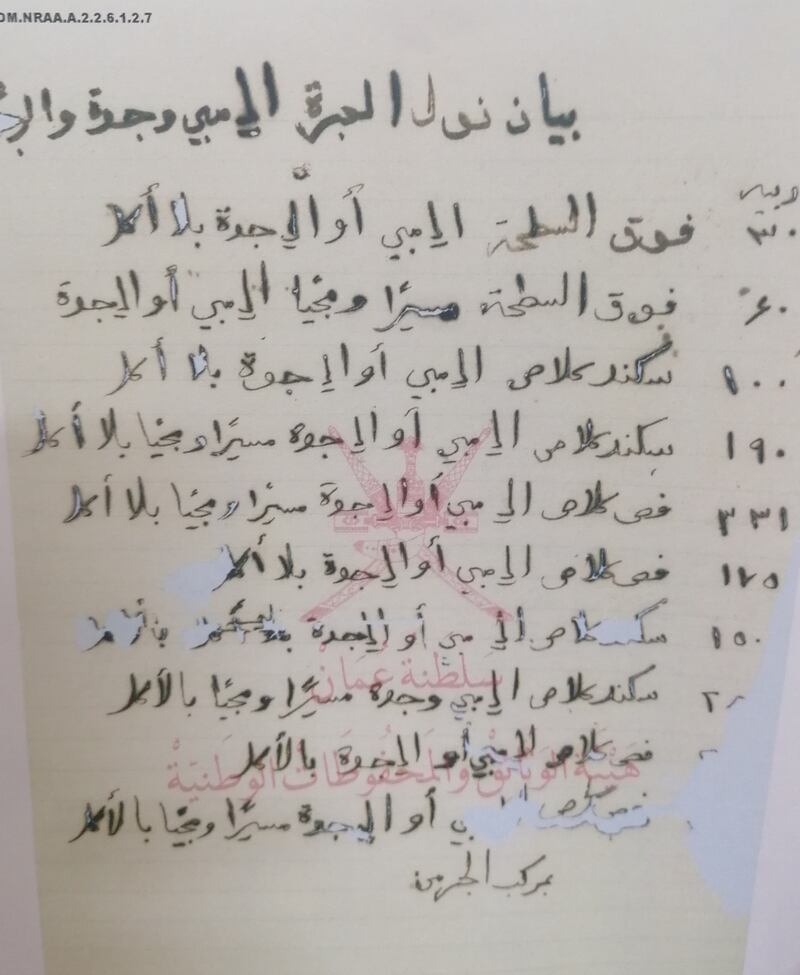 OM.NRAA.A.2.2.6.1.2.7
بيان نول العبرة إلى مبي وجدة
ربيه
٣٠ فوق السطحة إلى مبي أو إلى جدة بلا أكل
٦٠ فوق السطحة مسيرًا ومجيًا إلى مبي أو إلى جدة
١٠٠ سكند كلاص إلى مبي أو إلى جدة بلا أكل
١٩٠ سكند كلاص إلى مبي أو إلى جدة مسيرًا ومجيًا بلا أكل
٣٣١ فص كلاص إلى مبي أو إلى جدة مسيرًا ومجيًا بلا أكل
١٧٥ فص كلاص إلى مبي أو إلى جدة بلا أكل
١٥٠ سكند كلاص إلى مبي أو إلى جدة
سكند كلاص إلى مبي وجدة مسيرًا ومجيًا بالأكل
فص كلاص إلى مبي أو إلى جدة بالأكل
أو إلى جدة مسيرًا ومجيًا بالأكل
بمركب الجرمن
سلطنة عمان
هيئة الوثائق والمحفوظات الوطنية